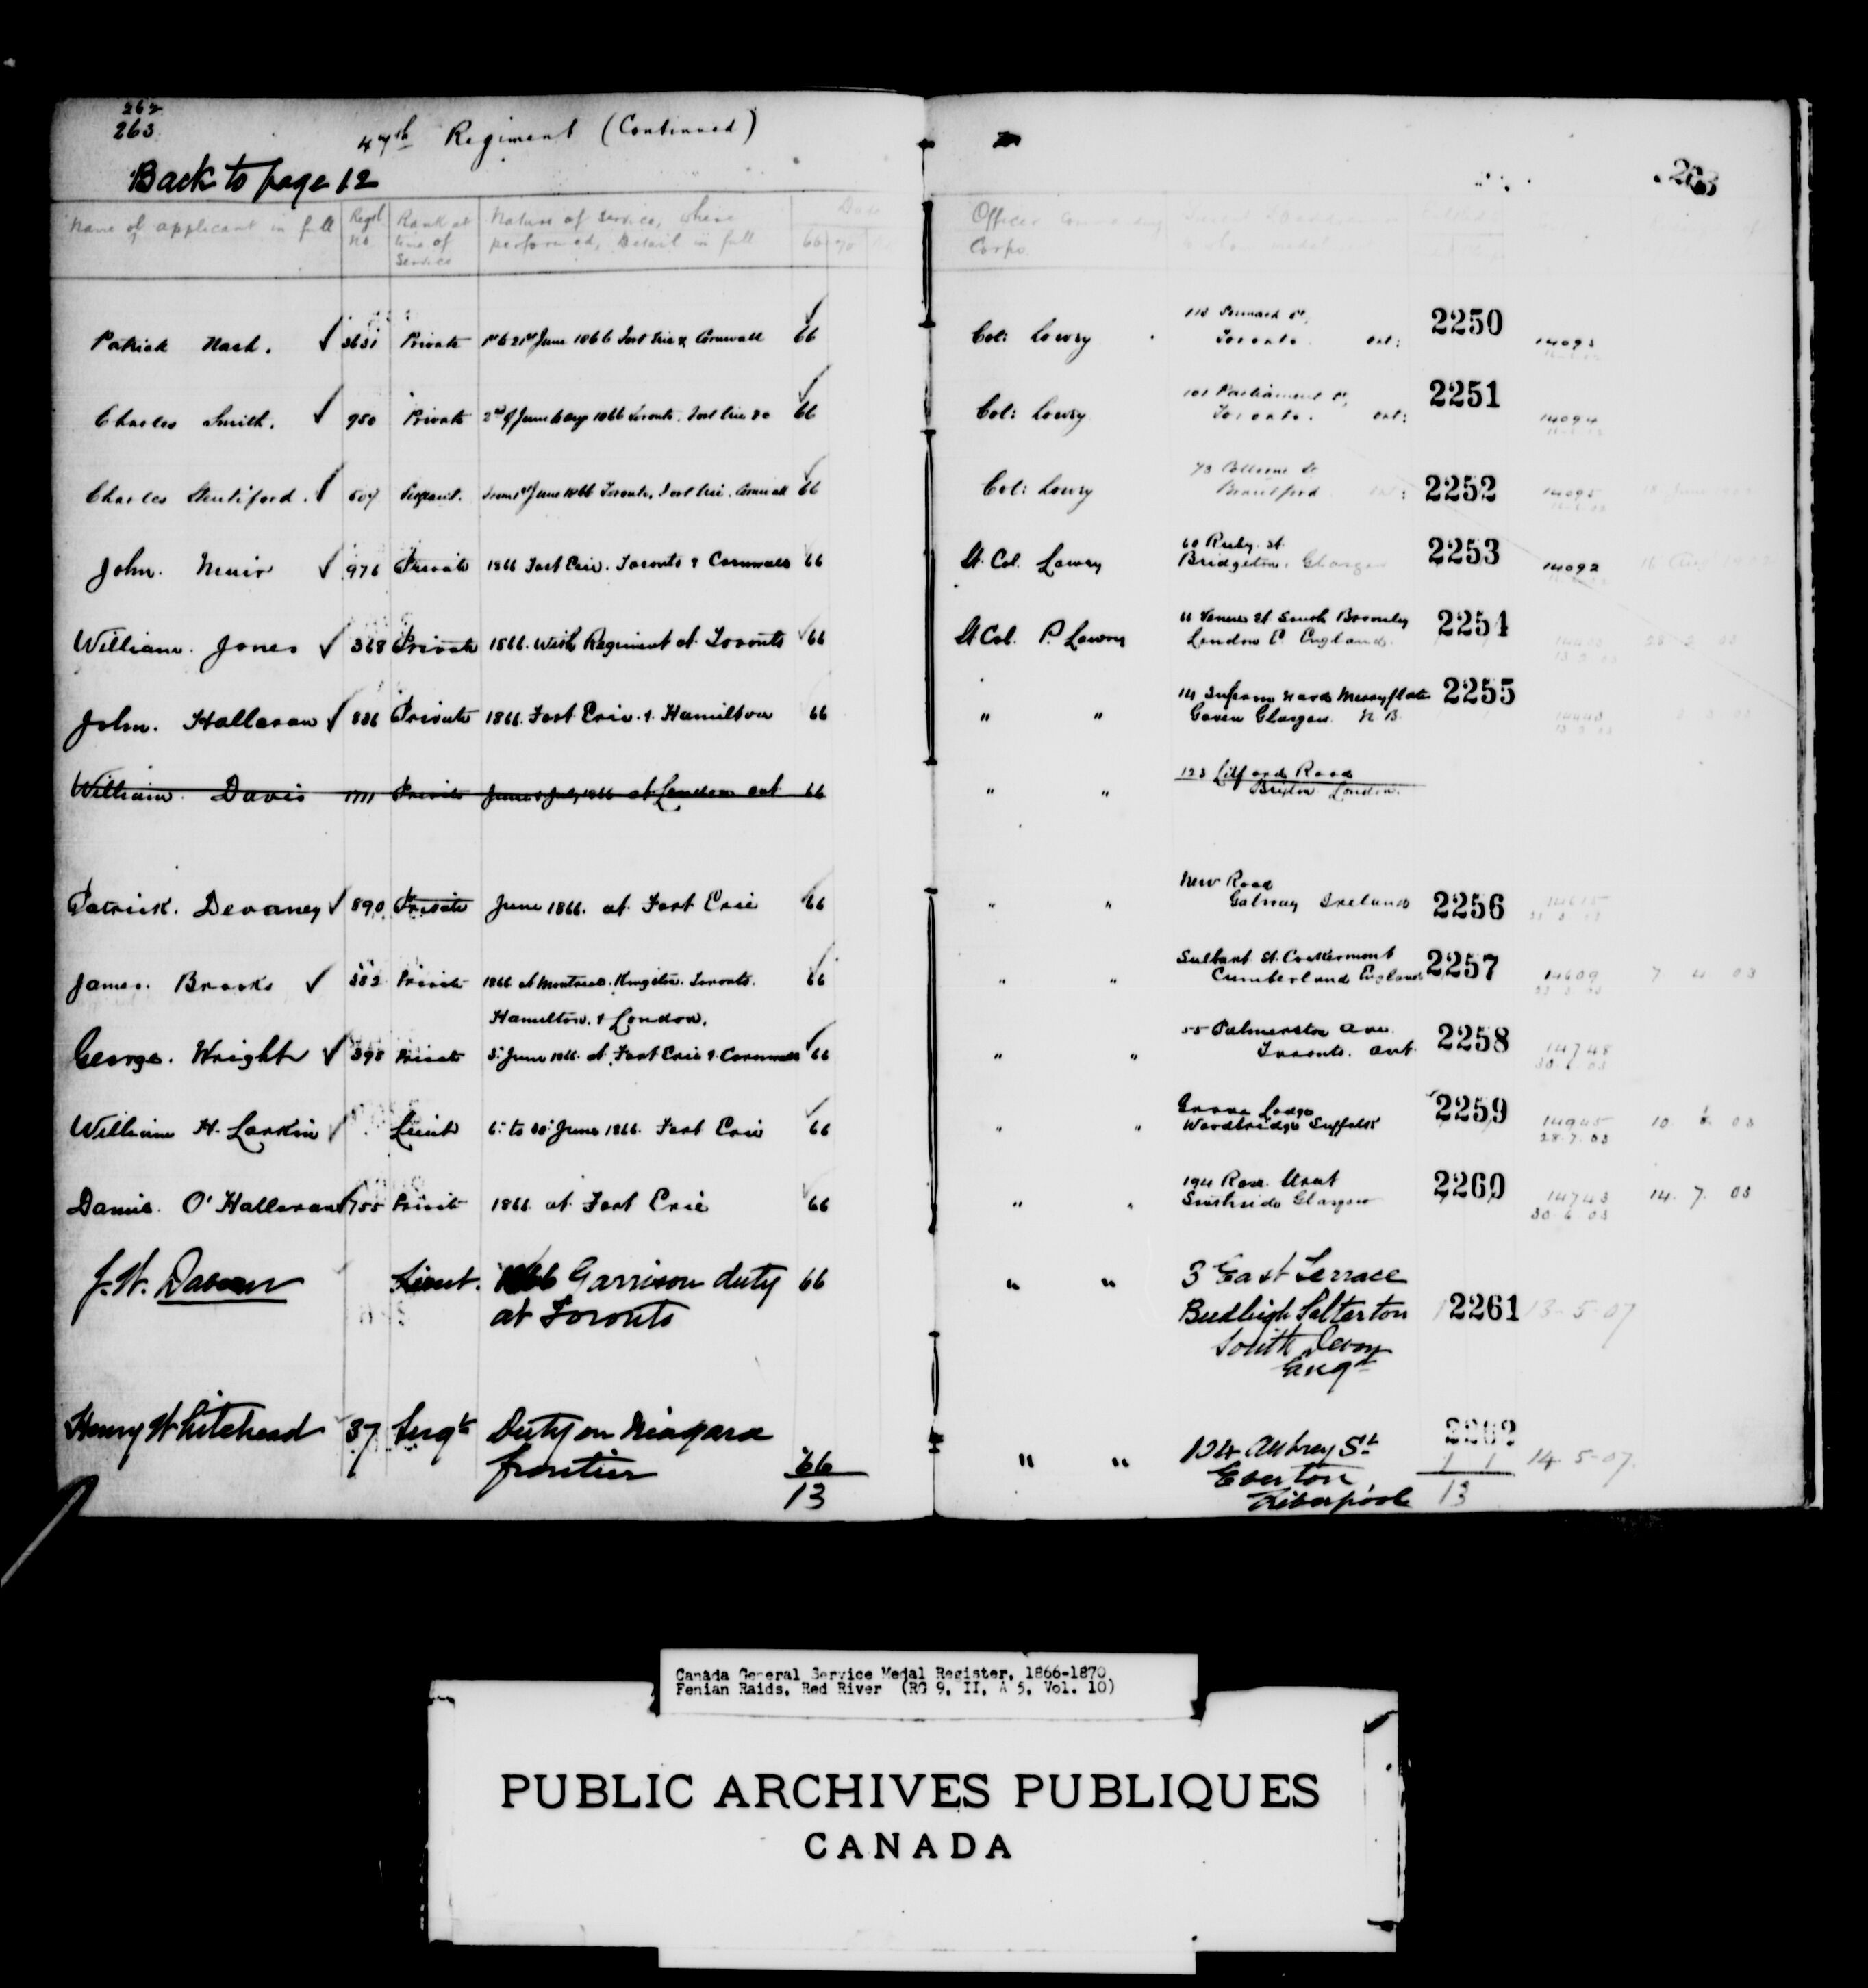 262
263
47th Regiment (Continued)
Back to page 12
263
Name of applicant in full Regtl No. Rank at time of Service Nature of Service, where performed, Detail in full 66 70 Officer Commanding Corps
Patrick Nash. 3631 Private 1st to 21st June 1866 Fort Erie & Cornwall 66 Col: Lowry Toronto. Ont: 2250 14093
Charles Smith. 950 Private 66 Col: Lowry 101 Parliament St, Toronto. Ont: 2251 14094
Charles 607 Sergeant. June 1866 Toronto, Fort Erie. Cornwall 66 Col: Lowry 73 Colborne St Brantford 2252 14095
John. Muir 976 Private 1866 Fort Erie. Toronto & Cornwall 66 Lt. Col. Lowry 60 Ruby. St. Bridgeton. Glasgow 2253 14092
William. Jones 368 Private 1866. With Regiment at Toronto 66 Lt Col. P. Lowry 11 Venue St. South Bromley London E. England. 2254
John. Halloran 836 Private 1866. Fort Erie. & Hamilton 66 " " 14 Ward Merryflats Govan Glasgow. N.B. 2255
William. Davis 1711 Private June & July 1866 at London Ont 66 " " 123 Lilford Road Brixton London.
Patrick. Devaney 890 Private June 1866. at Fort Erie 66 " " New Road Galway Ireland 2256
James. Brooks 382 Private 1866 at Montreal. Kingston. Toronto. 66 " " St. Cockermont Cumberland England 2257 14609 7 4 03
Hamilton. & London.
George. Wright 398 Private 3: June 1866. at Fort Erie & Cornwall 66 " " 55 Palmerston Ave. Toronto. Ont. 2258 14748
30.6.03
William H. Larkin Lieut 6: to 30: June 1866. Fort Erie 66 " " Grove Lodge Woodbridge Suffolk 2259 14945 10 03
28.7.03
Daniel. O'Halloran 755 Private 1866 at Fort Erie 66 " " 194 Rose Street Southside Glasgow 2260 14743 14. 7. 03
30 6 03
J. W. Lieut. 1866 Garrison duty 66 " " 3 East Terrace
at Toronto Budleigh Salterton 2261 13-5-07
South Devon
Engd
Henry Whitehead 37 Sergt Duty on Niagara " " 124 Aubrey St 2262
frontier 66 Everton 14-5-07.
13 Liverpool 13
Canada General Service Medal Register, 1866-1870,
Fenian Raids, Red River (RG 9, II, A 5, Vol. 10)
PUBLIC ARCHIVES PUBLIQUES
CANADA